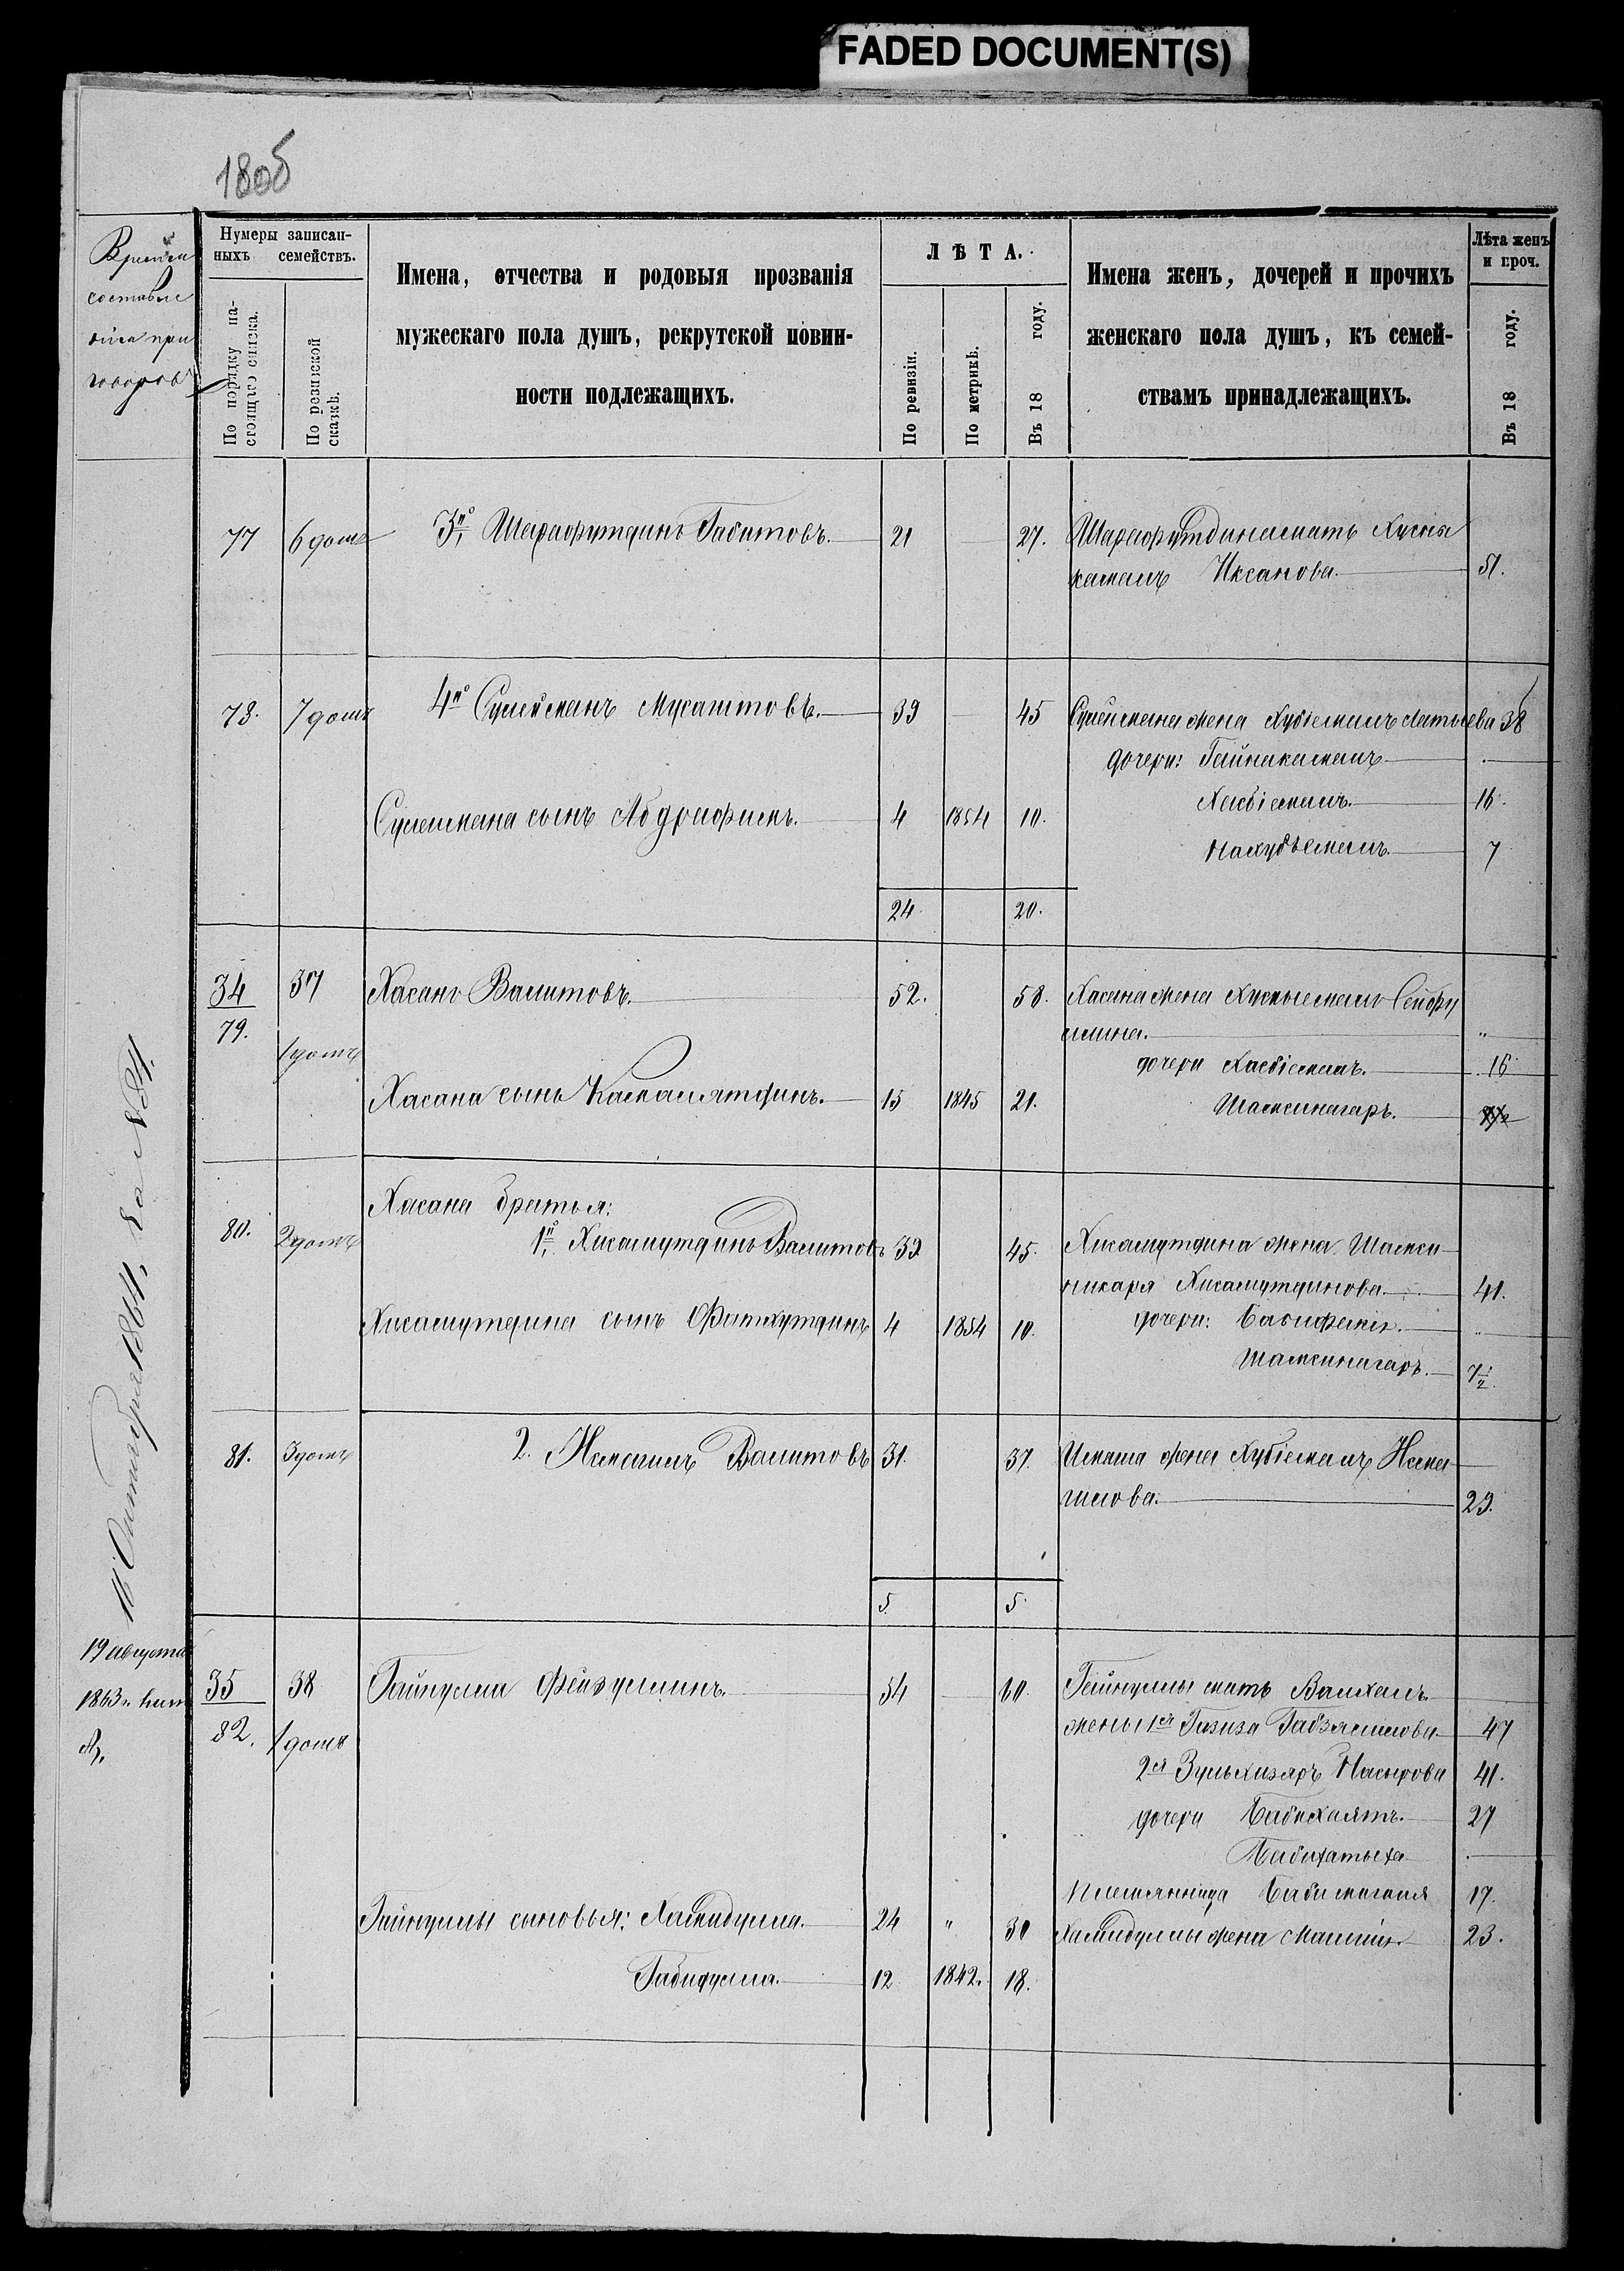 FADED DOCUMENT(S)
1805
Время
составле
нiя при
говоровъ
Нумеры записан-
ныхъ семействъ.
По порядку на-
стоящаго списка.
По ревизской
сказкѣ.
Имена, отчества и родовыя прозванія
мужескаго пола душъ, рекрутской повин-
ности подлежащихъ.
ЛѢТА.
По ревизіи.
По метрикѣ.
Въ 18 году.
Имена женъ, дочерей и прочихъ
женскаго пола душъ, къ семей-
ствамъ принадлежащихъ.
Лѣта женъ
и проч.
Въ 18 году.
77 6 домъ 3е, Шарафутдинъ Габитовъ. 21 — 27. Шарафутдина мать Хусна
камалъ Иксанова. 51.
78. 7 домъ 4е Сулейманъ Мусаитовъ. 39 — 45 Сулеймана жена Хубiемалъ 38
дочери: Гайникамалъ —
Сулеймана сынъ Абдрафикъ. 4 1854 10. Хасбiемалъ. 16.
Махубъемалъ. 7
24. 20.
34 37 Хасанъ Валитовъ. 52. 58. Хасана жена Хуснъемалъ Сейфу
79. 1 домъ лина. "
дочери Хасбiемалъ. 16
Хасана сынъ Камалятдинъ. 15 1845 21. Шамсинагаръ.
Хасана братья:
80. 2 домъ 1е, Хисамутдинъ Валитовъ 39 45. Хисамутдина жена Шамси
никаря Хисамутдинова. 41.
Хисамутдина сынъ Фатхутдинъ 4 1854 10. дочери: "
Шамсинагаръ. 7 1/2
81. 3 домъ 2. Исмагилъ Валитовъ 31. 37. жена Хубiемалъ Исма
гилова. 29.
5. 5.
11 Октября 1864, за № 84.
19 августа
1863 г.
35 38 Гайнулла Фейзуллинъ. 54 — 60. Гайнуллы мать
82. 1 домъ жены 1я Газиза 47
2я Зулькизяръ Насырова 41.
дочери Бибихаятъ. 27
Бибихатыха —
племянница 17.
Гайнуллы сыновья: Хамидулла. 24 " 30 Хамидуллы жена 23.
Габидулла. 12 1842. 18.